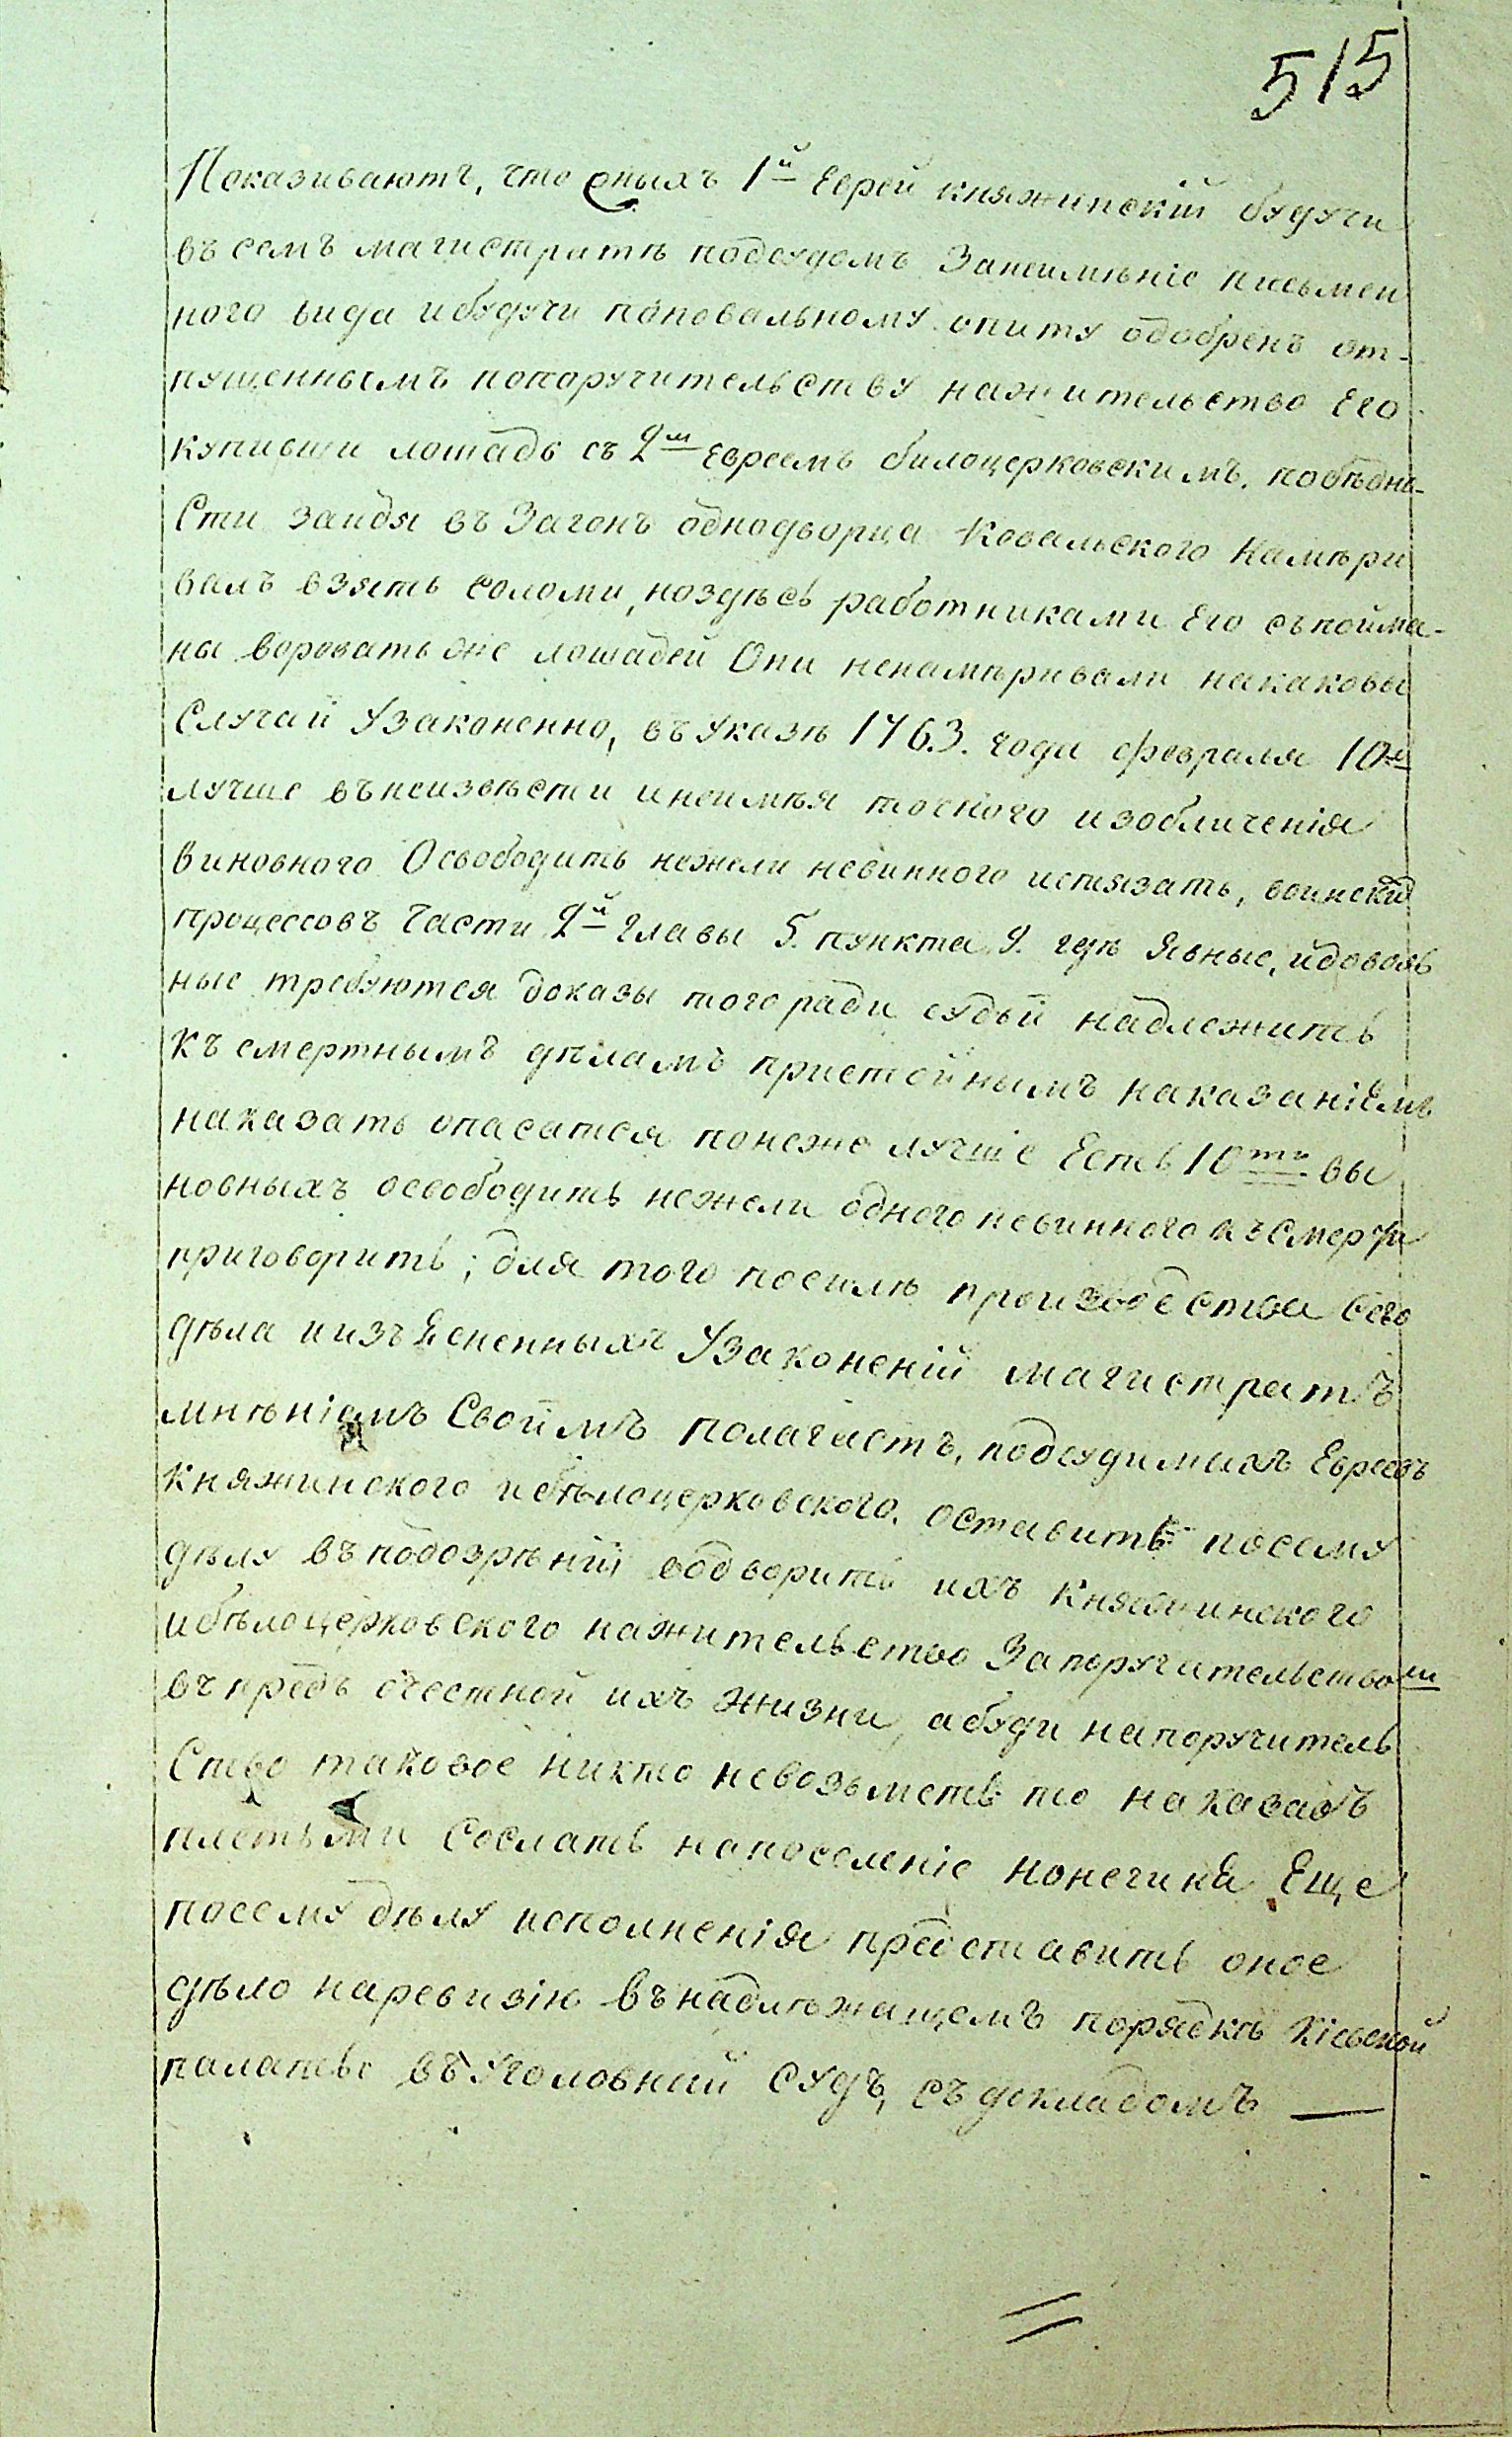 515
Показиваютъ, что оныхъ 1й Еврей княжинскій будучи
въ семъ магистратѣ подсудомъ Занеимѣніе писмен
ного вида ибудучи поповальному опиту одобренъ от-
пущеннымъ попоручительству нажительство Его
купивши лошадь съ 2м Евреемъ билоцерковскимъ, побѣдно-
Сти зайдя въ Загонъ однодворца Ковальского Намѣри
валъ взять соломи, ноздѣсь работниками Его съпойма-
ны воровать же лошадей Они ненамѣривали накаковы
Случай Узаконенно, въ Указѣ 1763. года февраля 10го
лучше въ неизвѣсти инеимѣя точного изобличенія
виновного Освободить нежели невинного истязать, воинскихъ
процессовъ Части 2й Главы 5. пункта 9. гдѣ Явные, идоволь
ные требуются доказы того ради судьй надлежитъ
къ смертнымъ дѣламъ пристойнымъ наказаніЕмъ
наказать опасатся понеже лучшіе Есть 10ть вы
новныхъ освободить нежели одного невинного къ Смерти
приговорить; для того посилѣ производства Сего
дѣла и изъЯсненныхъ Узаконеній магистратъ
мнѣніямъ Своимъ полагаетъ, подсудимыхъ Евреевъ
Княжинского ибѣлоцерковского, оставить посему
дѣлу въ подозрѣній водворить ихъ Княжинского
ибѣлоцерковского нажительство Запоручительством
въ предь очестной ихъ Жизни, абуди напоручитель
Ство таковое никто невозьметь то наказавъ
плетьми Сослать напоселеніе нонечиня Еще
посему дѣлу исполненія представить оное
дѣло наревизію въ надлѣжащемъ порядкѣ Кіевской
палатьс въ Уголовный Судъ, съ докладомъ —